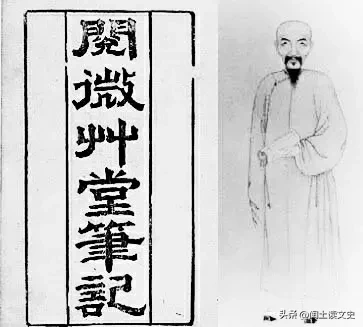 閱微艸堂筆記
头条@闻土谈文史